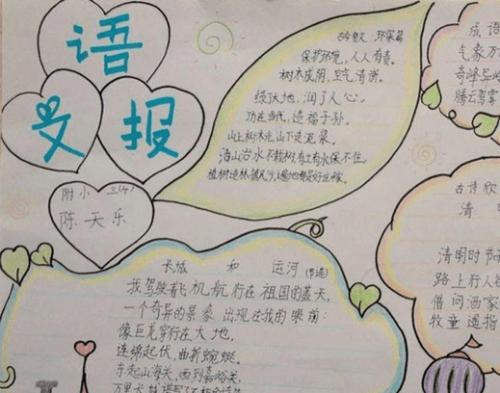 语
文 报
附小 三(4)
陈天乐
保护环境，人人有责。
树木成阴，空气清新。
绿込大地，润了人心。
功在当代，造福子孙。
山上树木光，山下走泥浆。
治山治水不栽树，有土有水保不住。
长城 和 运河(节选)
我驾驶着飞机航行在祖国的蓝天，
一个奇异的景象出现在我的眼前：
像巨龙穿行在大地，
连绵起伏，曲折蜿蜒。
东起山海关，西到嘉峪关，
万里长城
成语
气象万
奇峰异
腾云驾雾
古诗欣
清
清明时节
路上行人
借问酒家
牧童遥指